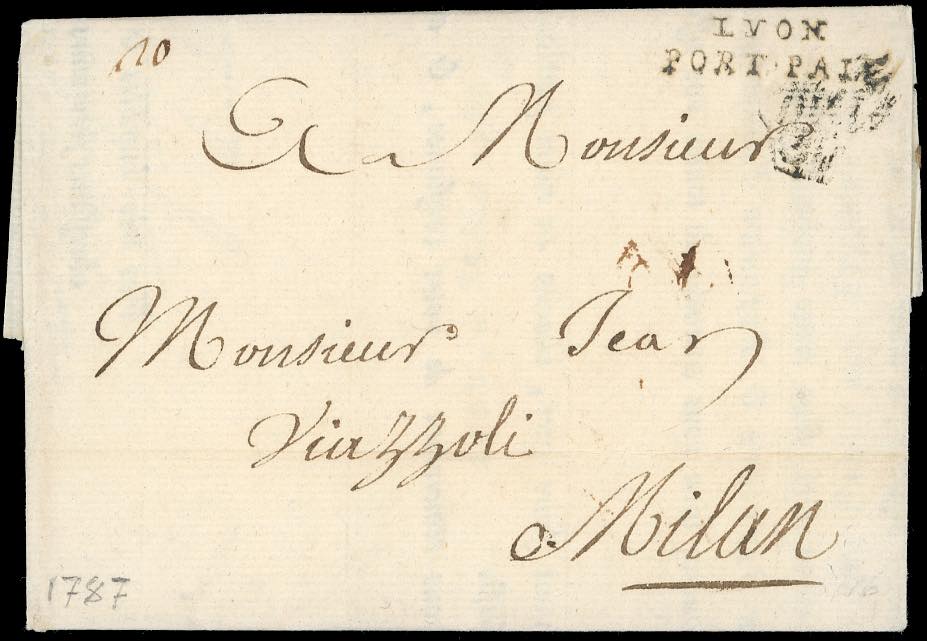 10
LYON
PORT·PAIE
A Monsieur
Monsieur Jean
Viazzoli
a. Milan
1787